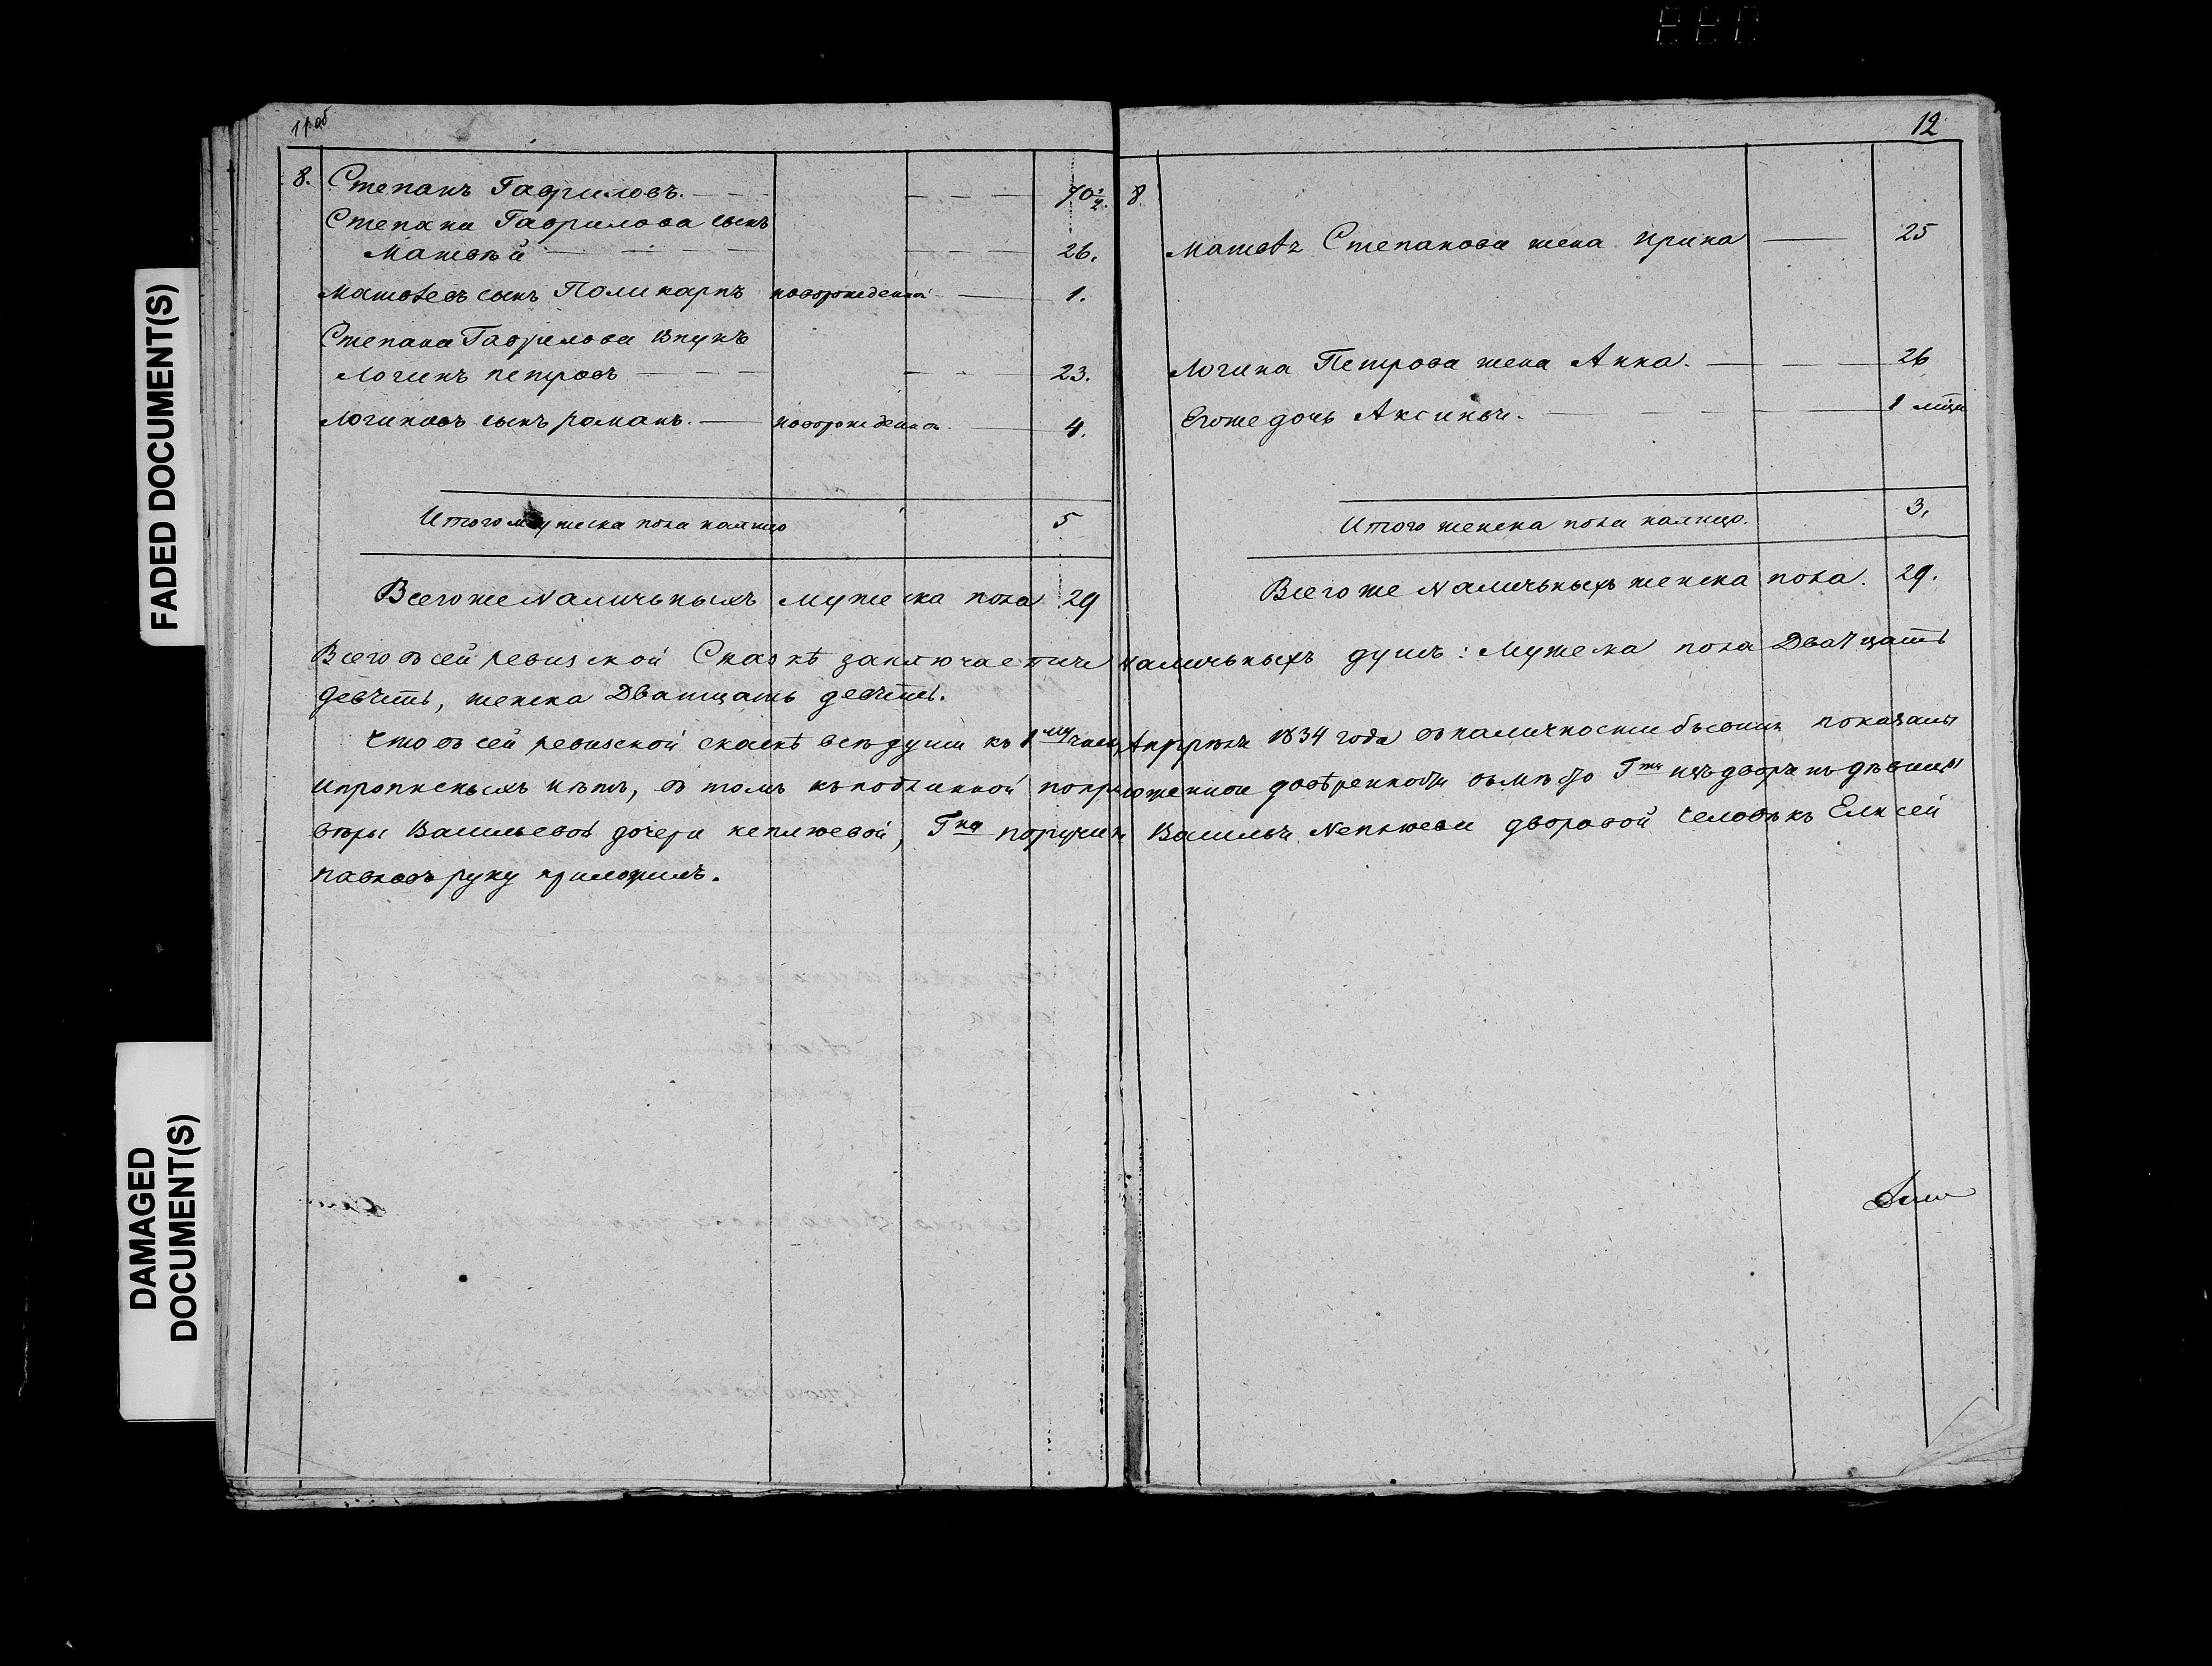 11 об
12
8. Степанъ Гавриловъ. 70½.
Степана Гаврилова сынъ
Матвѣй 26.
Матвѣевъ сынъ Поликарпъ новорожденной 1.
Степана Гаврилова внукъ
Логинъ петровъ 23.
Логиновъ сынъ романъ. новорожденной 4.
Итого мужеска пола налицо 5
Всегоже Наличьныхъ мужеска пола 29
8
Матвѣя Степанова жена Ирина 25
Логина Петрова жена Анна. 26
Егоже дочь Аксинья. 1 мѣся
Итого женска пола налицо. 3.
Всего же Наличьныхъ женска пола. 29.
Всего въ сей ревизской Сказкѣ заключается наличьныхъ душъ: Мужеска пола Двадцать
девять, женска Дватцать девять.
Что въ сей ревизской сказкѣ всѣ души къ 1му числу Апрѣля 1834 года въ наличности бывшия показаны
ипрописныхъ нѣтъ, въ томъ къ подлинной по приложенной довѣренности вмѣсто Гжи изъ дворянъ дѣвицы
вѣры Васильевой дочери неплюевой, Гна поручика Василья Неплюева дворовой человѣкъ Елисей
павловъ руку приложилъ.
FADED DOCUMENT(S)
DAMAGED
DOCUMENT(S)